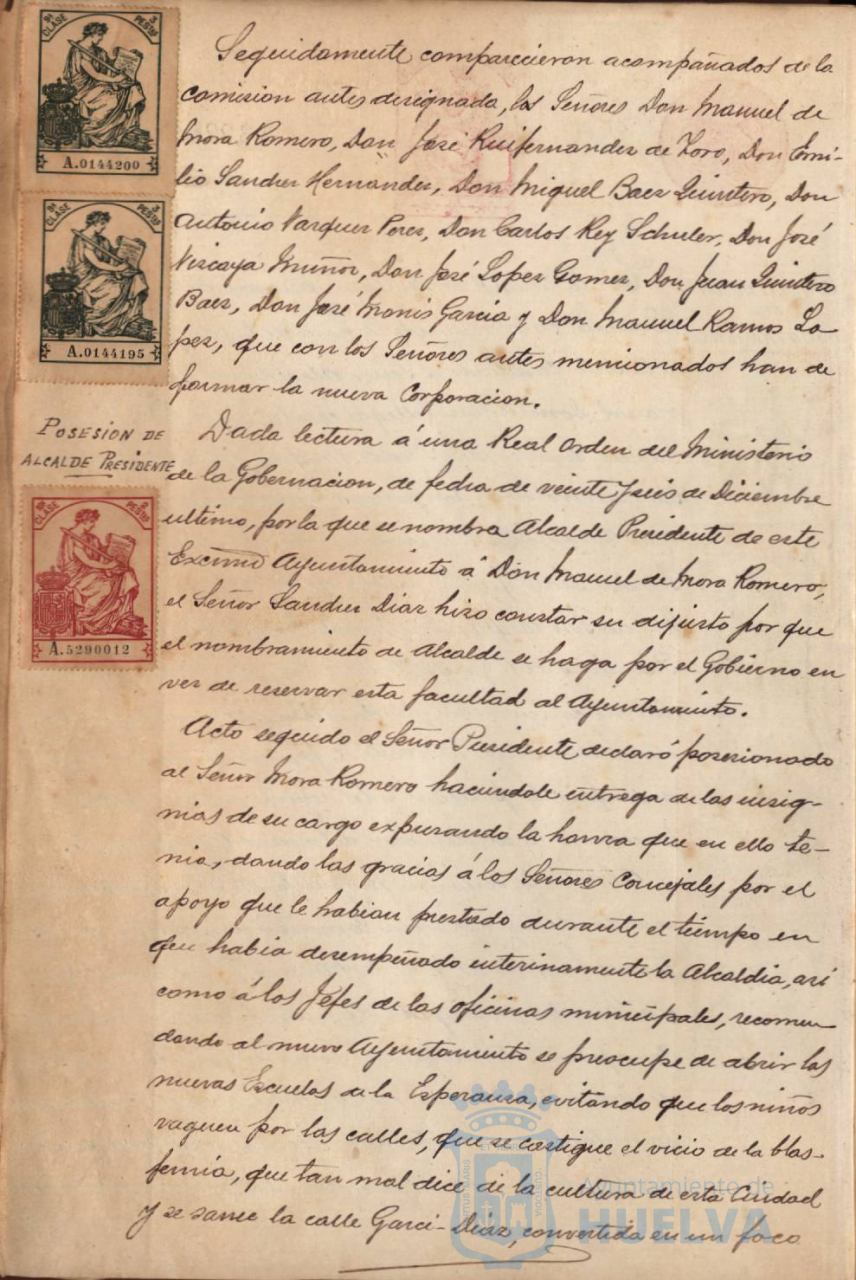 9ª CLASE
3 PESTAS
A.0144200
9ª CLASE
3 PESTAS
A.0144195
POSESION DE
ALCALDE PRESIDENTE
8ª CLASE
2 PESTAS
A.5290012
Seguidamente comparecieron acompañados de la
comision antes designada, los Señores Don Manuel de
Mora Romero, Don José Ruifernandez de Toro, Don Emi-
lio Sanchez Hernandez, Don Miguel Baez Quintero, Don
Antonio Vazquez Perez, Don Carlos Rey Schuler, Don José
Vizcaya Muñoz, Don José Lopez Gomez, Don Juan Quintero
Baez, Don José Monis Garcia y Don Manuel Ramos Lo
pez, que con los Señores antes mencionados han de
formar la nueva Corporacion.
Dada lectura á una Real Orden del Ministerio
de la Gobernacion, de fecha de veinte y seis de Diciembre
ultimo, por la que se nombra Alcalde Presidente de este
Excmo Ayuntamiento á Don Manuel de Mora Romero,
el Señor Sanchez Diaz hizo constar su disgusto por que
el nombramiento de Alcalde se haga por el Gobierno en
vez de reservar esta facultad al Ayuntamiento.
Acto seguido el Señor Presidente declaró posesionado
al Señor Mora Romero haciéndole entrega de las insig-
nias de su cargo expresando la honra que en ello te-
nia, dando las gracias á los Señores Concejales por el
apoyo que le habian prestado durante el tiempo en
que habia desempeñado interinamente la Alcaldia, asi
como á los Jefes de las oficinas municipales, recomen
dando al nuevo Ayuntamiento se preocupe de abrir las
nuevas Escuelas de la Esperanza, evitando que los niños
vaguen por las calles, que se castigue el vicio de la blas-
femia, que tan mal dice de la cultura de esta Ciudad
y se sanee la calle Garci-Diaz, convertida en un foco
Ayuntamiento de
HUELVA